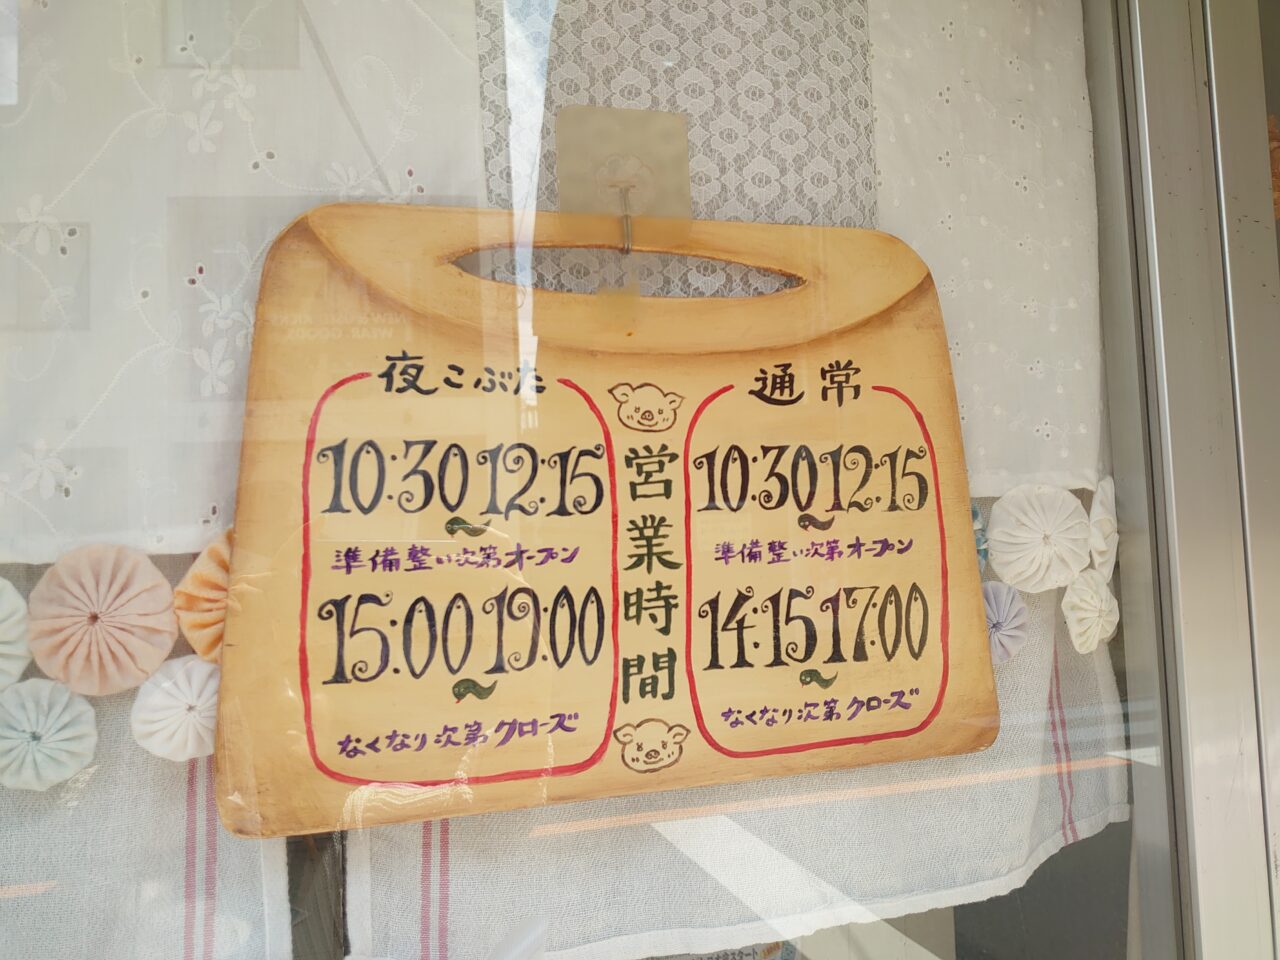 夜こぶた
10:30～12:15
準備整い次第オープン
15:00～19:00
なくなり次第クローズ
営業時間
通常
10:30～12:15
準備整い次第オープン
14:15～17:00
なくなり次第クローズ